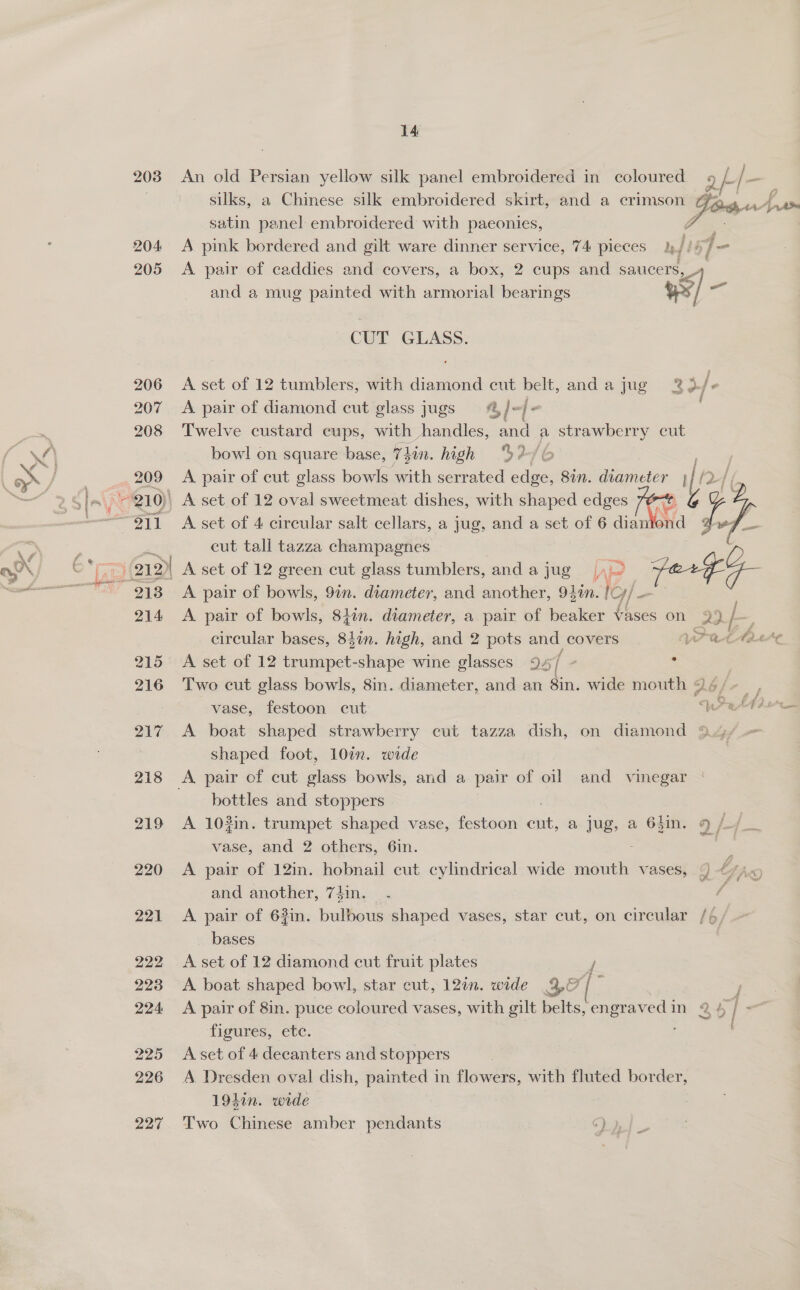 14
203 An old Persian yellow silk panel embroidered in coloured
silks, a Chinese silk embroidered skirt, and a crimson
satin panel embroidered with paeonies,
204 A pink bordered and gilt ware dinner service, 74 pieces
205 A pair of caddies and covers, a box, 2 cups and saucers,
and a mug painted with armorial bearings
CUT GLASS.
206 A set of 12 tumblers, with diamond cut belt, and a jug
207 A pair of diamond cut glass jugs
208 Twelve custard cups, with handles, and a strawberry cut
bowl on square base, 7½in. high
209 A pair of cut glass bowls with serrated edge, 8in. diameter
210 A set of 12 oval sweetmeat dishes, with shaped edges
211 A set of 4 circular salt cellars, a jug, and a set of 6 diamond
cut tall tazza champagnes
212 A set of 12 green cut glass tumblers, and a jug
213 A pair of bowls, 9in. diameter, and another, 9½in.
214 A pair of bowls, 8½in. diameter, a pair of beaker vases on
circular bases, 8½in. high, and 2 pots and covers
215 A set of 12 trumpet-shape wine glasses
216 Two cut glass bowls, 8in. diameter, and an 8in. wide mouth
vase, festoon cut
217 A boat shaped strawberry cut tazza dish, on diamond
shaped foot, 10in. wide
218 A pair of cut glass bowls, and a pair of oil and vinegar
bottles and stoppers
219 A 10¾in. trumpet shaped vase, festoon cut, a jug, a 6½in.
vase, and 2 others, 6in.
220 A pair of 12in. hobnail cut cylindrical wide mouth vases,
and another, 7½in.
221 A pair of 6¾in. bulbous shaped vases, star cut, on circular
bases
222 A set of 12 diamond cut fruit plates
223 A boat shaped bowl, star cut, 12in. wide
224 A pair of 8in. puce coloured vases, with gilt belts, engraved in
figures, etc.
225 A set of 4 decanters and stoppers
226 A Dresden oval dish, painted in flowers, with fluted border,
19½in. wide
227 Two Chinese amber pendants